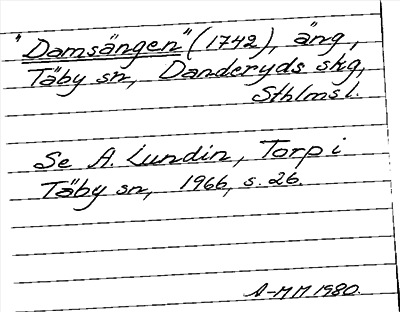 "Damsängen" (1742), äng,
Täby sn, Danderyds skg,
Sthlms l.
Se A. Lundin, Torp i
Täby sn, 1966, s. 26.
A-MM 1980.